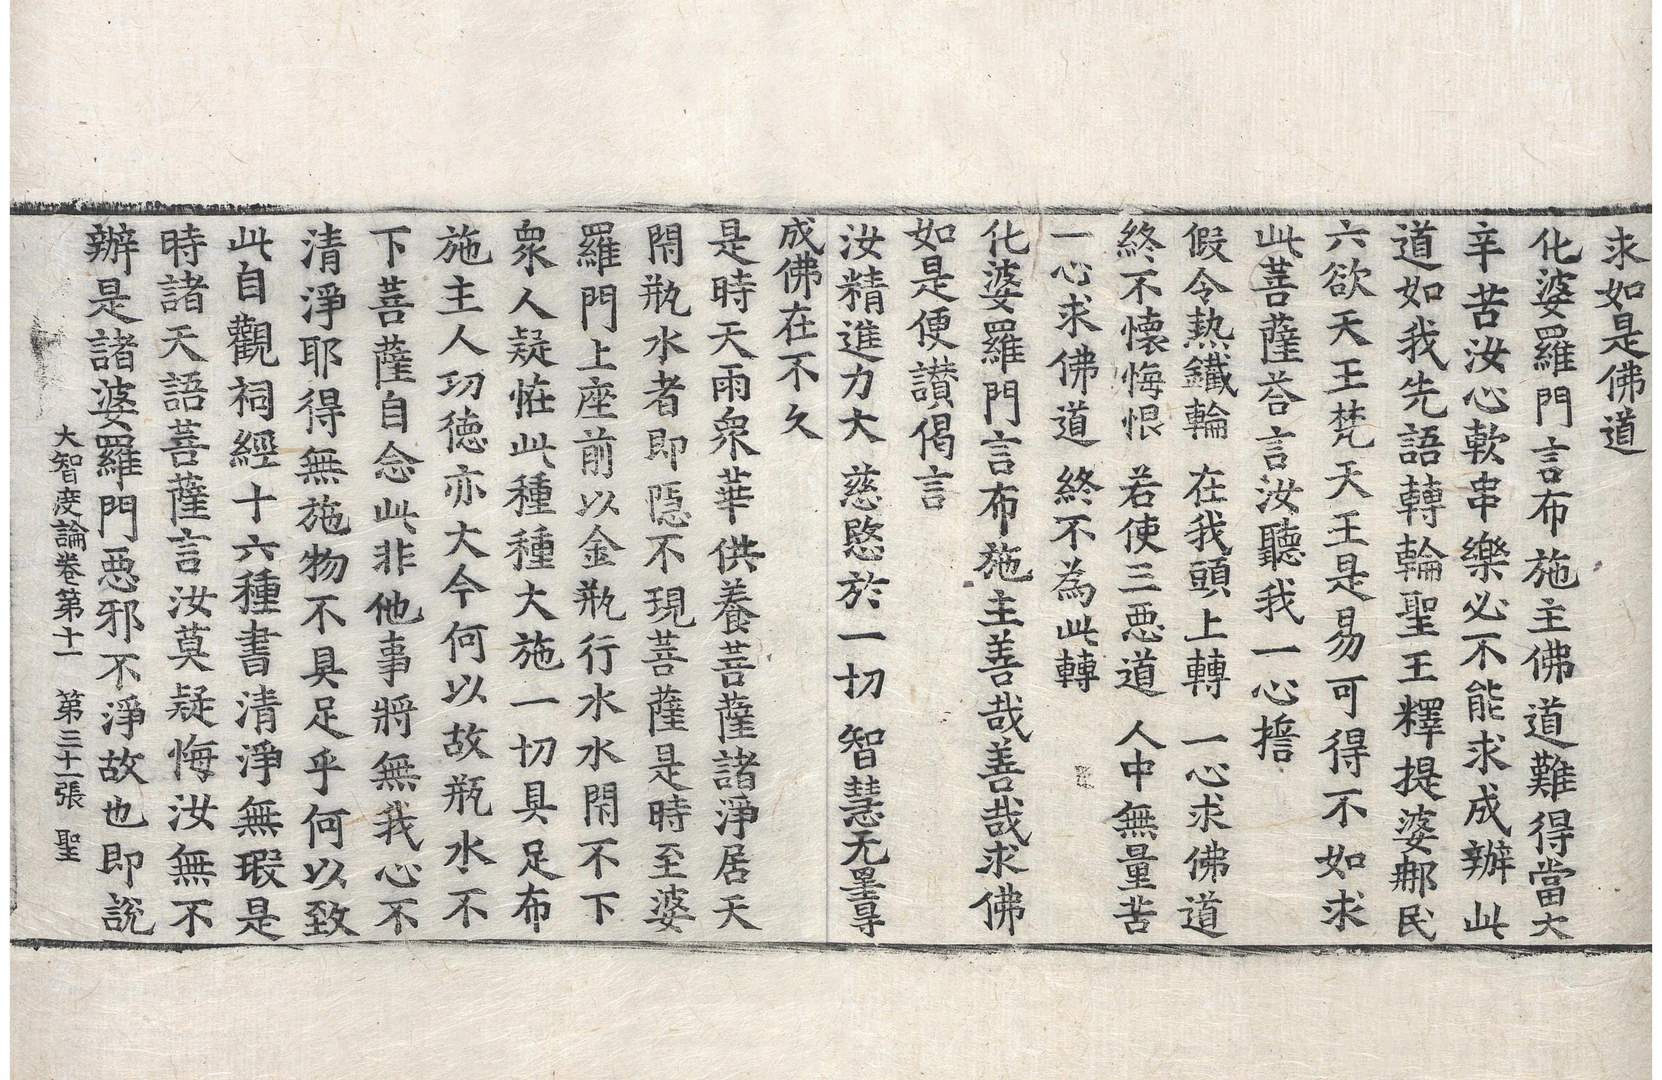 求如是佛道
化婆羅門言布施主佛道難得當大
辛苦汝心軟串樂必不能求成辦此
道如我先語轉輪聖王釋提婆那民
六欲天王梵天王是易可得不如求
此菩薩荅言汝聽我一心擔
假令熱鐵輪 在我頭上轉 一心求佛道
終不懷悔恨 若使三惡道 人中無量苦
一心求佛道 終不為此轉
化婆羅門言布施主善哉善哉求佛
如是便讃偈言
汝精進力大 慈愍於一切 智慧无罣㝵
成佛在不久
是時天雨衆華供養菩薩諸淨居天
閇瓶水者即隱不現菩薩是時至婆
羅門上座前以金瓶行水水閇不下
衆人疑恠此種種大施一切具足布
施主人功德亦大今何以故瓶水不
下菩薩自念此非他事將無我心不
清淨耶得無施物不具足乎何以致
此自觀祠經十六種書清淨無瑕是
時諸天語菩薩言汝莫疑悔汝無不
辦是諸婆羅門惡邪不淨故也即說
大智度論卷第十一 第三十一張 聖